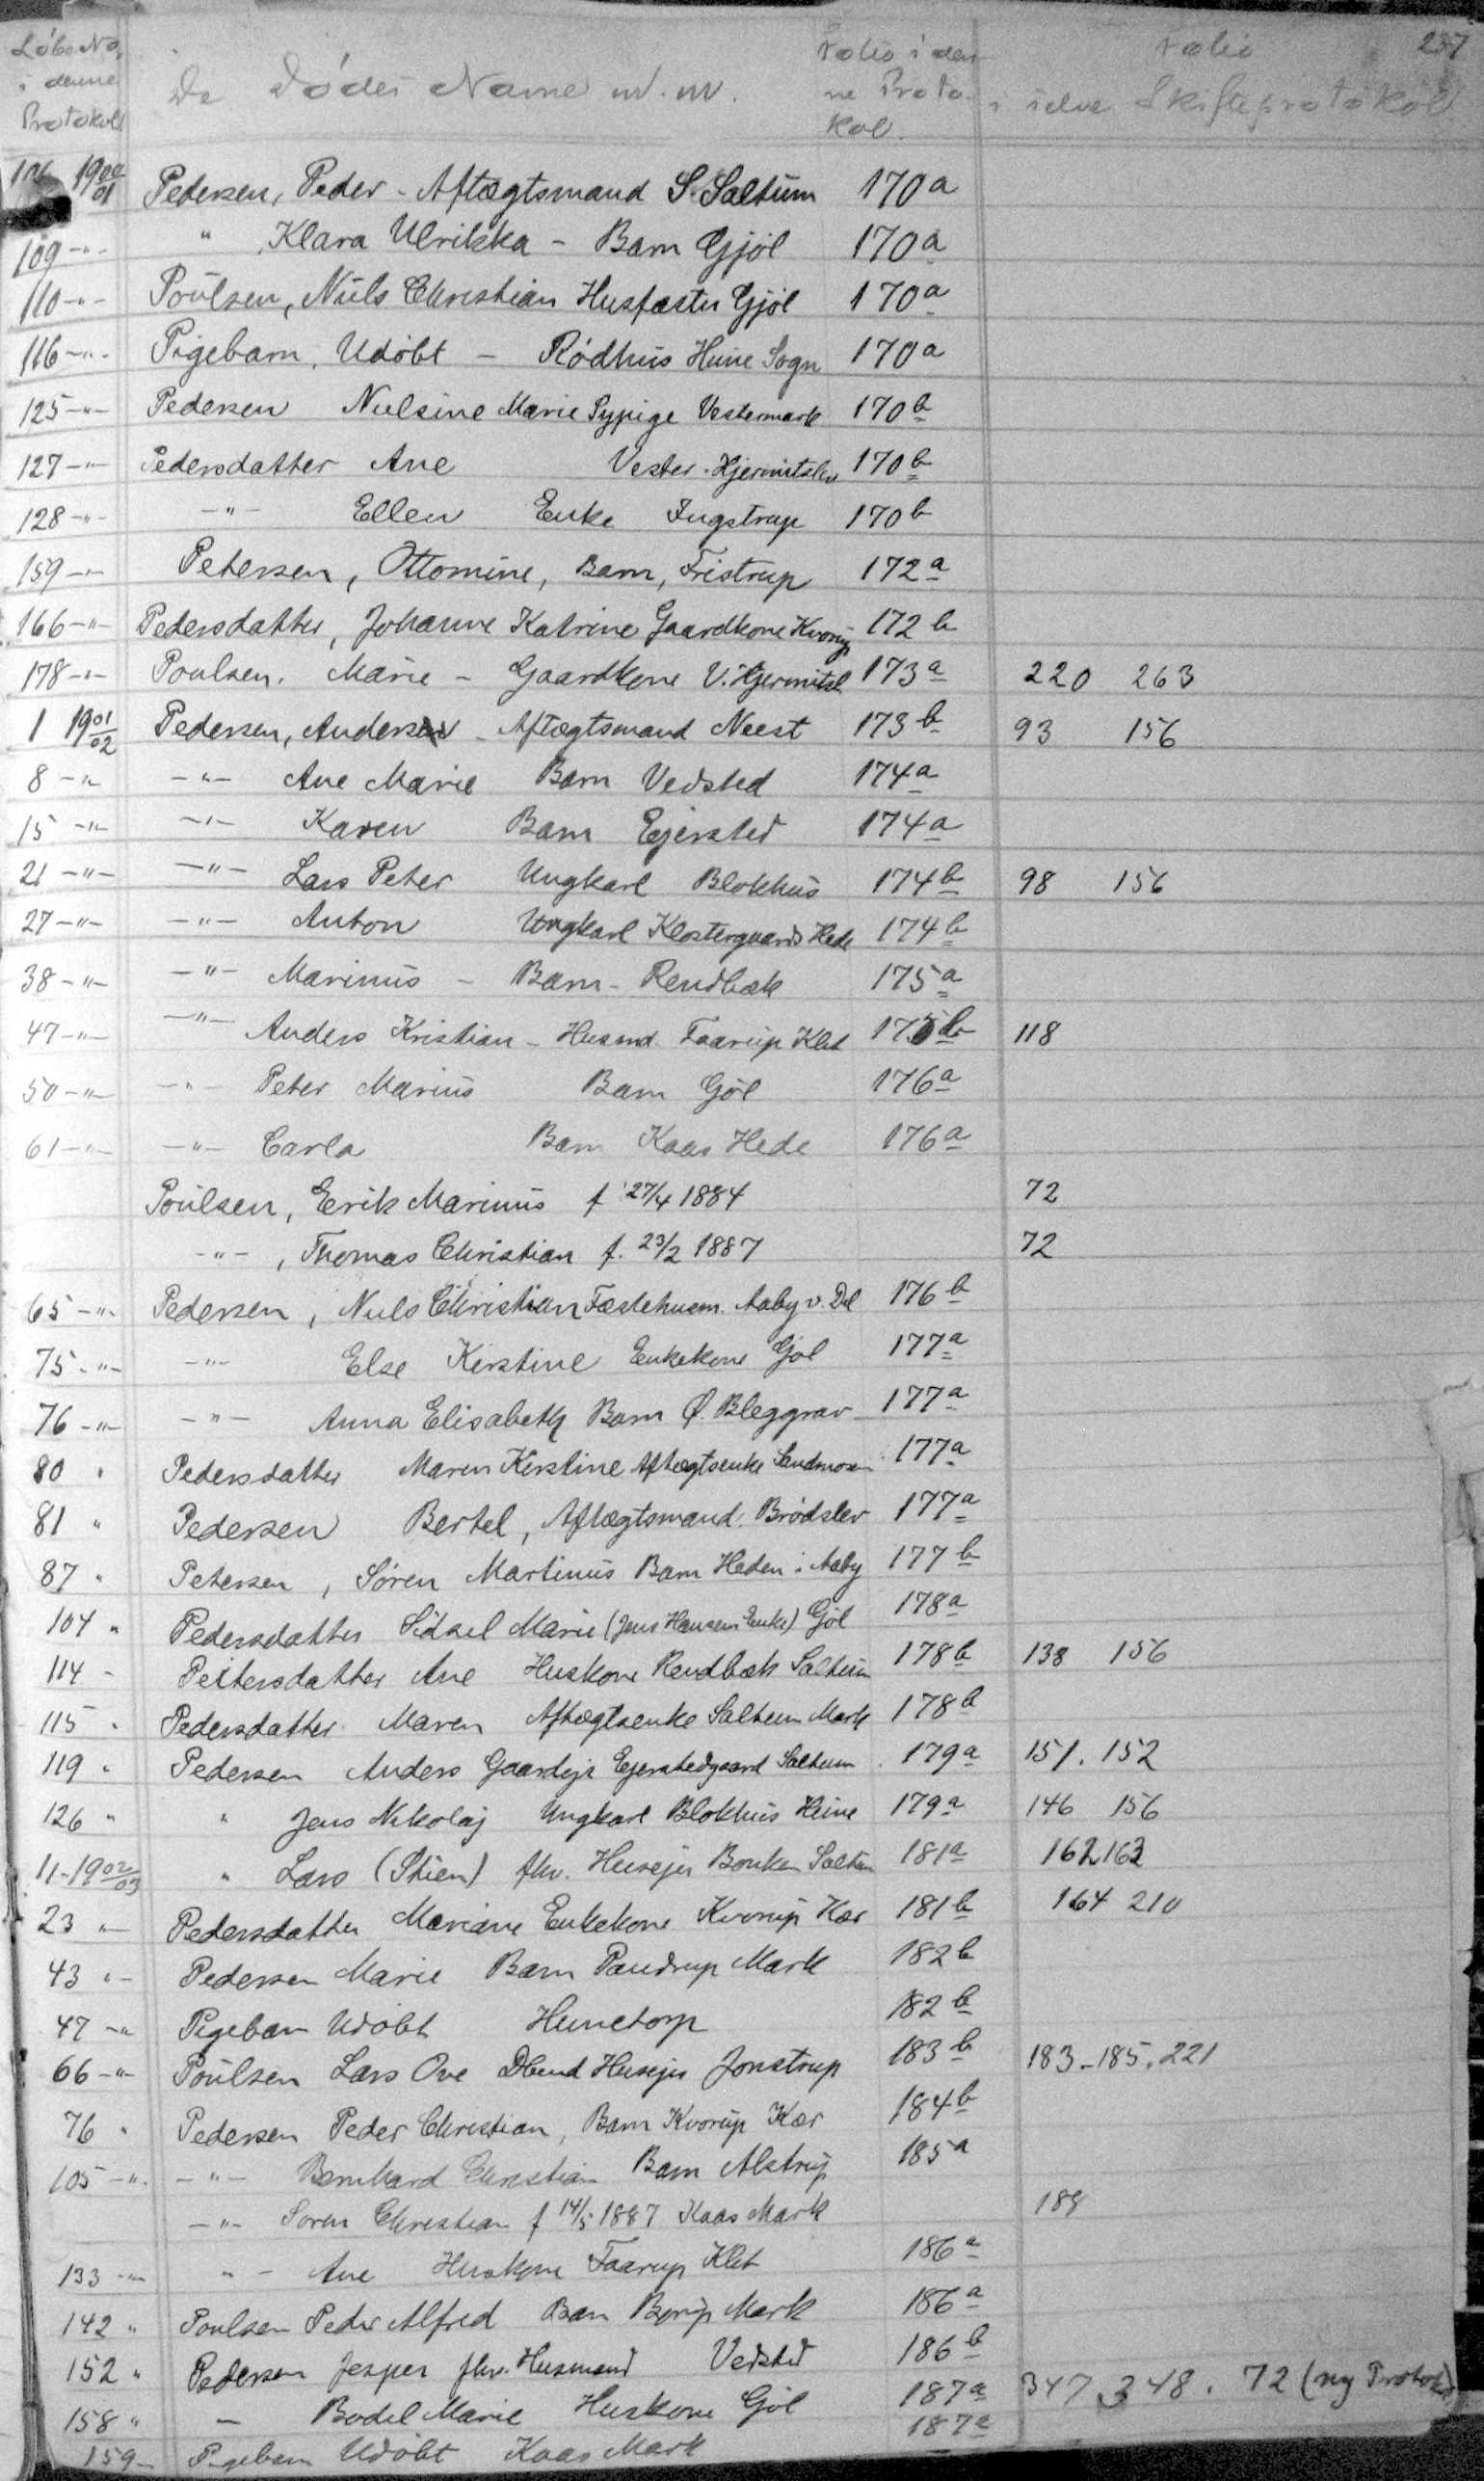 Löbe No. i denne Protokoll | De Dödes Navne m. m. | Folio i denne Protokol. | Folio i selve Skifteprotokol 237
106 1900/01 Pedersen, Peder - Aftægtsmand S. Saltum 170a
109 -"- " Klara Ulrikka - Barn Gjöl 170a
110 -"- Poulsen, Niels Christian Husfæster Gjöl 170a
116 -"- Pigebarn, Udöbt - Rödhus Hune Sogn 170a
125 -"- Pedersen Nielsine Marie Sypige Vestermark 170b
127 -"- Pedersdatter Ane Vester-Hjermitslev 170b
128 -"- -"- Ellen Enke Ingstrup 170b
159 -"- Petersen, Ottomine, Barn, Fristrup 172a
166 -"- Pedersdatter, Johanne Katrine Gaardkone Kvorup 172b
178 -"- Poulsen, Marie - Gaardkone V. Hjermitsl. 173a 220 263
1 1901/02 Pedersen, Anders - Aftægtsmand Neest 173b 93 156
8 -"- -"- Ane Marie Barn Vedsted 174a
15 -"- -"- Karen Barn Ejersted 174a
21 -"- -"- Lars Peter Ungkarl Blokhus 174b 98 156
27 -"- -"- Anton Ungkarl Klostergaards Hede 174b
38 -"- -"- Marinus - Barn - Rendbæk 175a
47 -"- -"- Anders Kristian - Husmd. Faarup Klit 175b 118
50 -"- -"- Peter Marius Barn Göl 176a
61 -"- -"- Carla Barn Kaas Hede 176a
Poulsen, Erik Marinus f 27/4 1884 72
-"-, Thomas Christian f. 23/2 1887 72
65 -"- Pedersen, Niels Christian Fæstehusm. Aaby v. Del 176b
75 -"- -"- Else Kirstine Enkekone Göl 177a
76 -"- -"- Anna Elisabeth Barn Ø. Bleggrav 177a
80 " Pedersdatter Maren Kirstine Aftægtsenke Sandmosen 177a
81 " Pedersen Bertel, Aftægtsmand. Brödslev 177a
87 " Petersen, Sören Martinus Barn Heden i Aaby 177b
104 " Pedersdatter Sidsel Marie (Jens Hansens Enke) Göl 178a
114 - Peitersdatter Ane Huskone Rendbæk Saltum 178b 138 156
115 " Pedersdatter Maren Aftægtsenke Saltum Mark 178b
119 " Pedersen Anders Gaardejr Ejerstedgaard Saltum 179a 151. 152
126 " " Jens Nikolaj Ungkarl Blokhus Hune 179a 146 156
11 - 1902/03 " Lars (Stien) fhv. Husejer Bonken Saltum 181a 162 163
23 " Pedersdatter Mariane Enkekone Kvorup Kær 181b 164 210
43 "- Pedersen Marie Barn Pandrup Mark 182b
47 -" Pigebarn Udöbt Hunetorp 182b
66 -"- Poulsen Lars Ove Dbmd Husejer Jonstrup 183b 183-185. 221
76 " Pedersen Peder Christian, Barn Kvorup Kær 184b
105 -"- -"- Bernhard Christian Barn Alstrup 185a
-"- Soren Christian f 14/5 1887 Kaas Mark 188
133 -"- "- Ane Huskone Faarup Klit 186a
142 " Poulsen Peder Alfred Barn Mark 186a
152 " Pedersen Jesper fhv. Husmand Vedsted 186b
158 " - Bodel Marie Huskone Göl 187a 347 348. 72 (ny Protokol)
159 - Pigebarn Udöbt Kaas Mark 187a